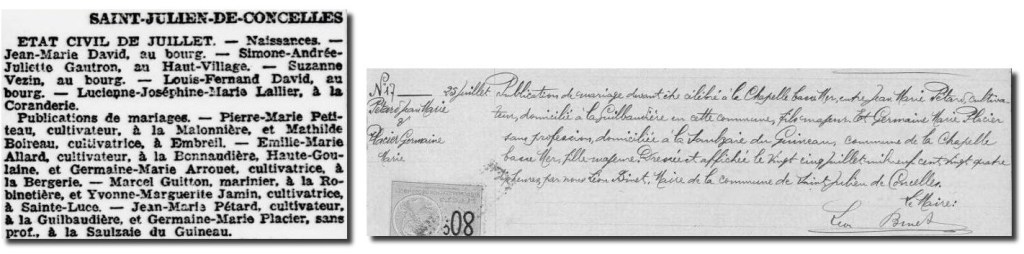 SAINT-JULIEN-DE-CONCELLES
ETAT CIVIL DE JUILLET. — Naissances. —
Jean-Marie David, au bourg. — Simone-Andrée-
Juliette Gautron, au Haut-Village. — Suzanne
Vezin, au bourg. — Louis-Fernand David, au
bourg. — Lucienne-Joséphine-Marie Lallier, à la
Coranderie.
Publications de mariages. — Pierre-Marie Peti-
teau, cultivateur, à la Malonnière, et Mathilde
Boireau, cultivatrice, à Embreil. — Emilie-Marie
Allard, cultivateur, à la Bonnaudière, Haute-Gou-
laine, et Germaine-Marie Arrouet, cultivatrice, à
la Bergerie. — Marcel Guitton, marinier, à la Ro-
binetière, et Yvonne-Marguerite Jamin, cultivatrice,
à Sainte-Luce. — Jean-Marie Pétard, cultivateur,
à la Guilbaudière, et Germaine-Marie Placier, sans
prof., à la Saulzaie du Guineau.
N° 17
Pétard Jean Marie
&
Placier Germaine
Marie
25 juillet Publication de mariage devant être célébré à la Chapelle basse Mer, entre Jean Marie Pétard, cultiva-
teur, domicilié à la Guilbaudière en cette commune, fils majeur. Et Germaine Marie Placier
sans profession, domiciliée à la Saulzaie du Guineau, commune de la Chapelle
basse Mer, fille majeure. Dressée et affichée le vingt cinq juillet mil neuf cent vingt quatre
heures, par nous Léon Binet, Maire de la commune de Saint Julien de Concelles.
Le Maire:
Léon Binet
308